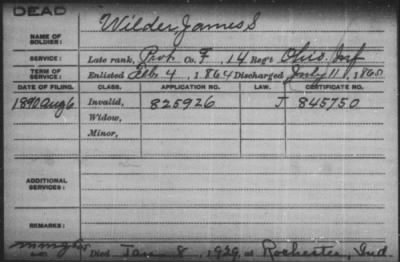 DEAD
NAME OF SOLDIER: Wilder, James S
SERVICE: Late rank, Pvt. Co. F, 14 Reg't Ohio Inf
TERM OF SERVICE: Enlisted Feb. 4, 1864 Discharged July 11, 1865
DATE OF FILING. CLASS. APPLICATION NO. LAW. CERTIFICATE NO.
1890 Aug 6 Invalid, 825926 J 845750
Widow,
Minor,
ADDITIONAL SERVICES:
REMARKS:
Died Jan 8, 1929, at Rochester, Ind.